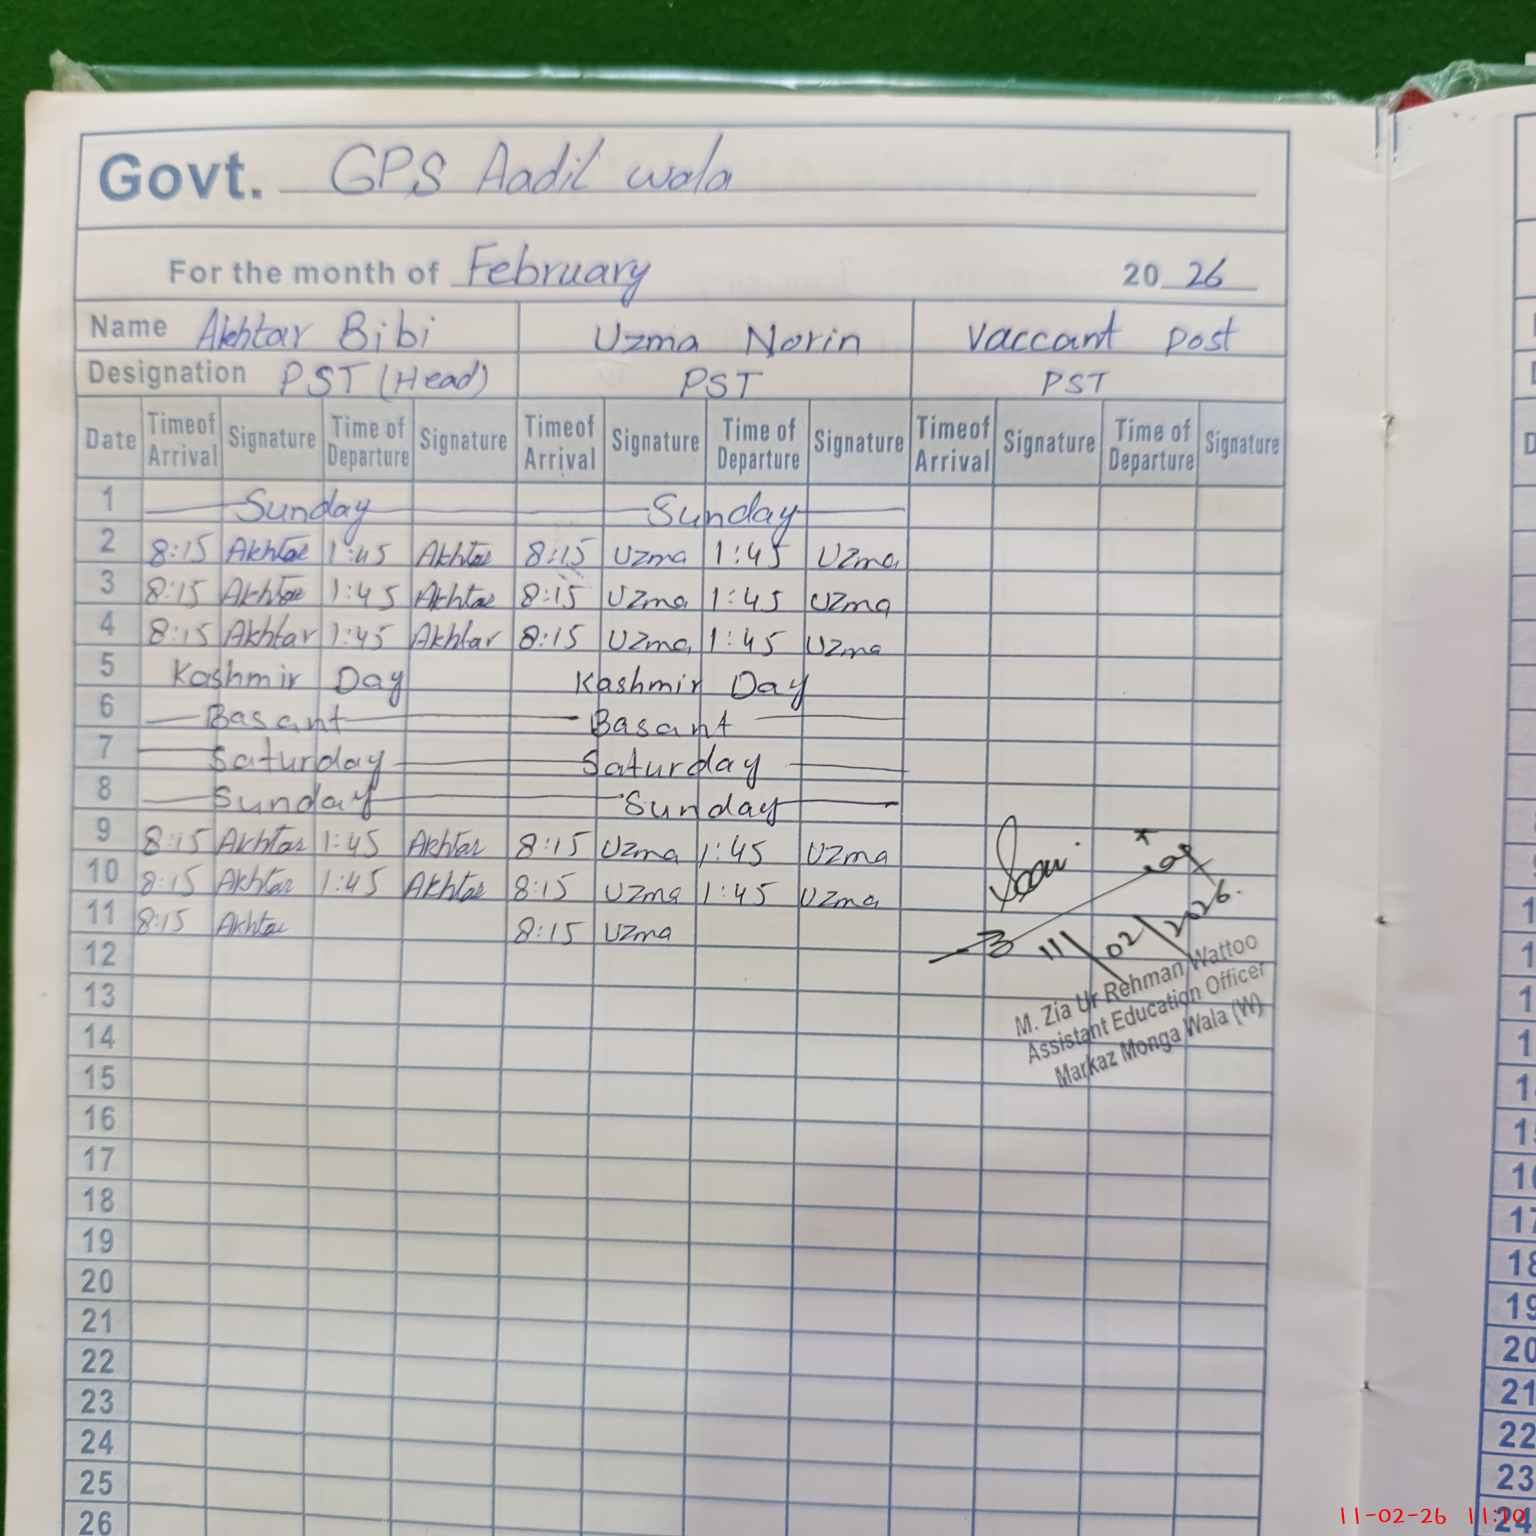 Govt. GPS Aadil wala
For the month of February 2026
Name Akhtar Bibi Uzma Norin Vaccant Post
Designation PST (Head) PST PST
Date Timeof Arrival Signature Time of Departure Signature Timeof Arrival Signature Time of Departure Signature Timeof Arrival Signature Time of Departure Signature
1 Sunday Sunday
2 8:15 Akhtar 1:45 Akhtar 8:15 Uzma 1:45 Uzma
3 8:15 Akhtar 1:45 Akhtar 8:15 Uzma 1:45 Uzma
4 8:15 Akhtar 1:45 Akhtar 8:15 Uzma 1:45 Uzma
5 Kashmir Day Kashmir Day
6 Basant Basant
7 Saturday Saturday
8 Sunday Sunday
9 8:15 Akhtar 1:45 Akhtar 8:15 Uzma 1:45 Uzma
10 8:15 Akhtar 1:45 Akhtar 8:15 Uzma 1:45 Uzma
11 8:15 Akhtar 8:15 Uzma
11/02/2026.
12
M. Zia Ur Rehman Wattoo
Assistant Education Officer
Markaz Monga Wala (W)
13
14
15
16
17
18
19
20
21
22
23
24
25
26
11-02-26